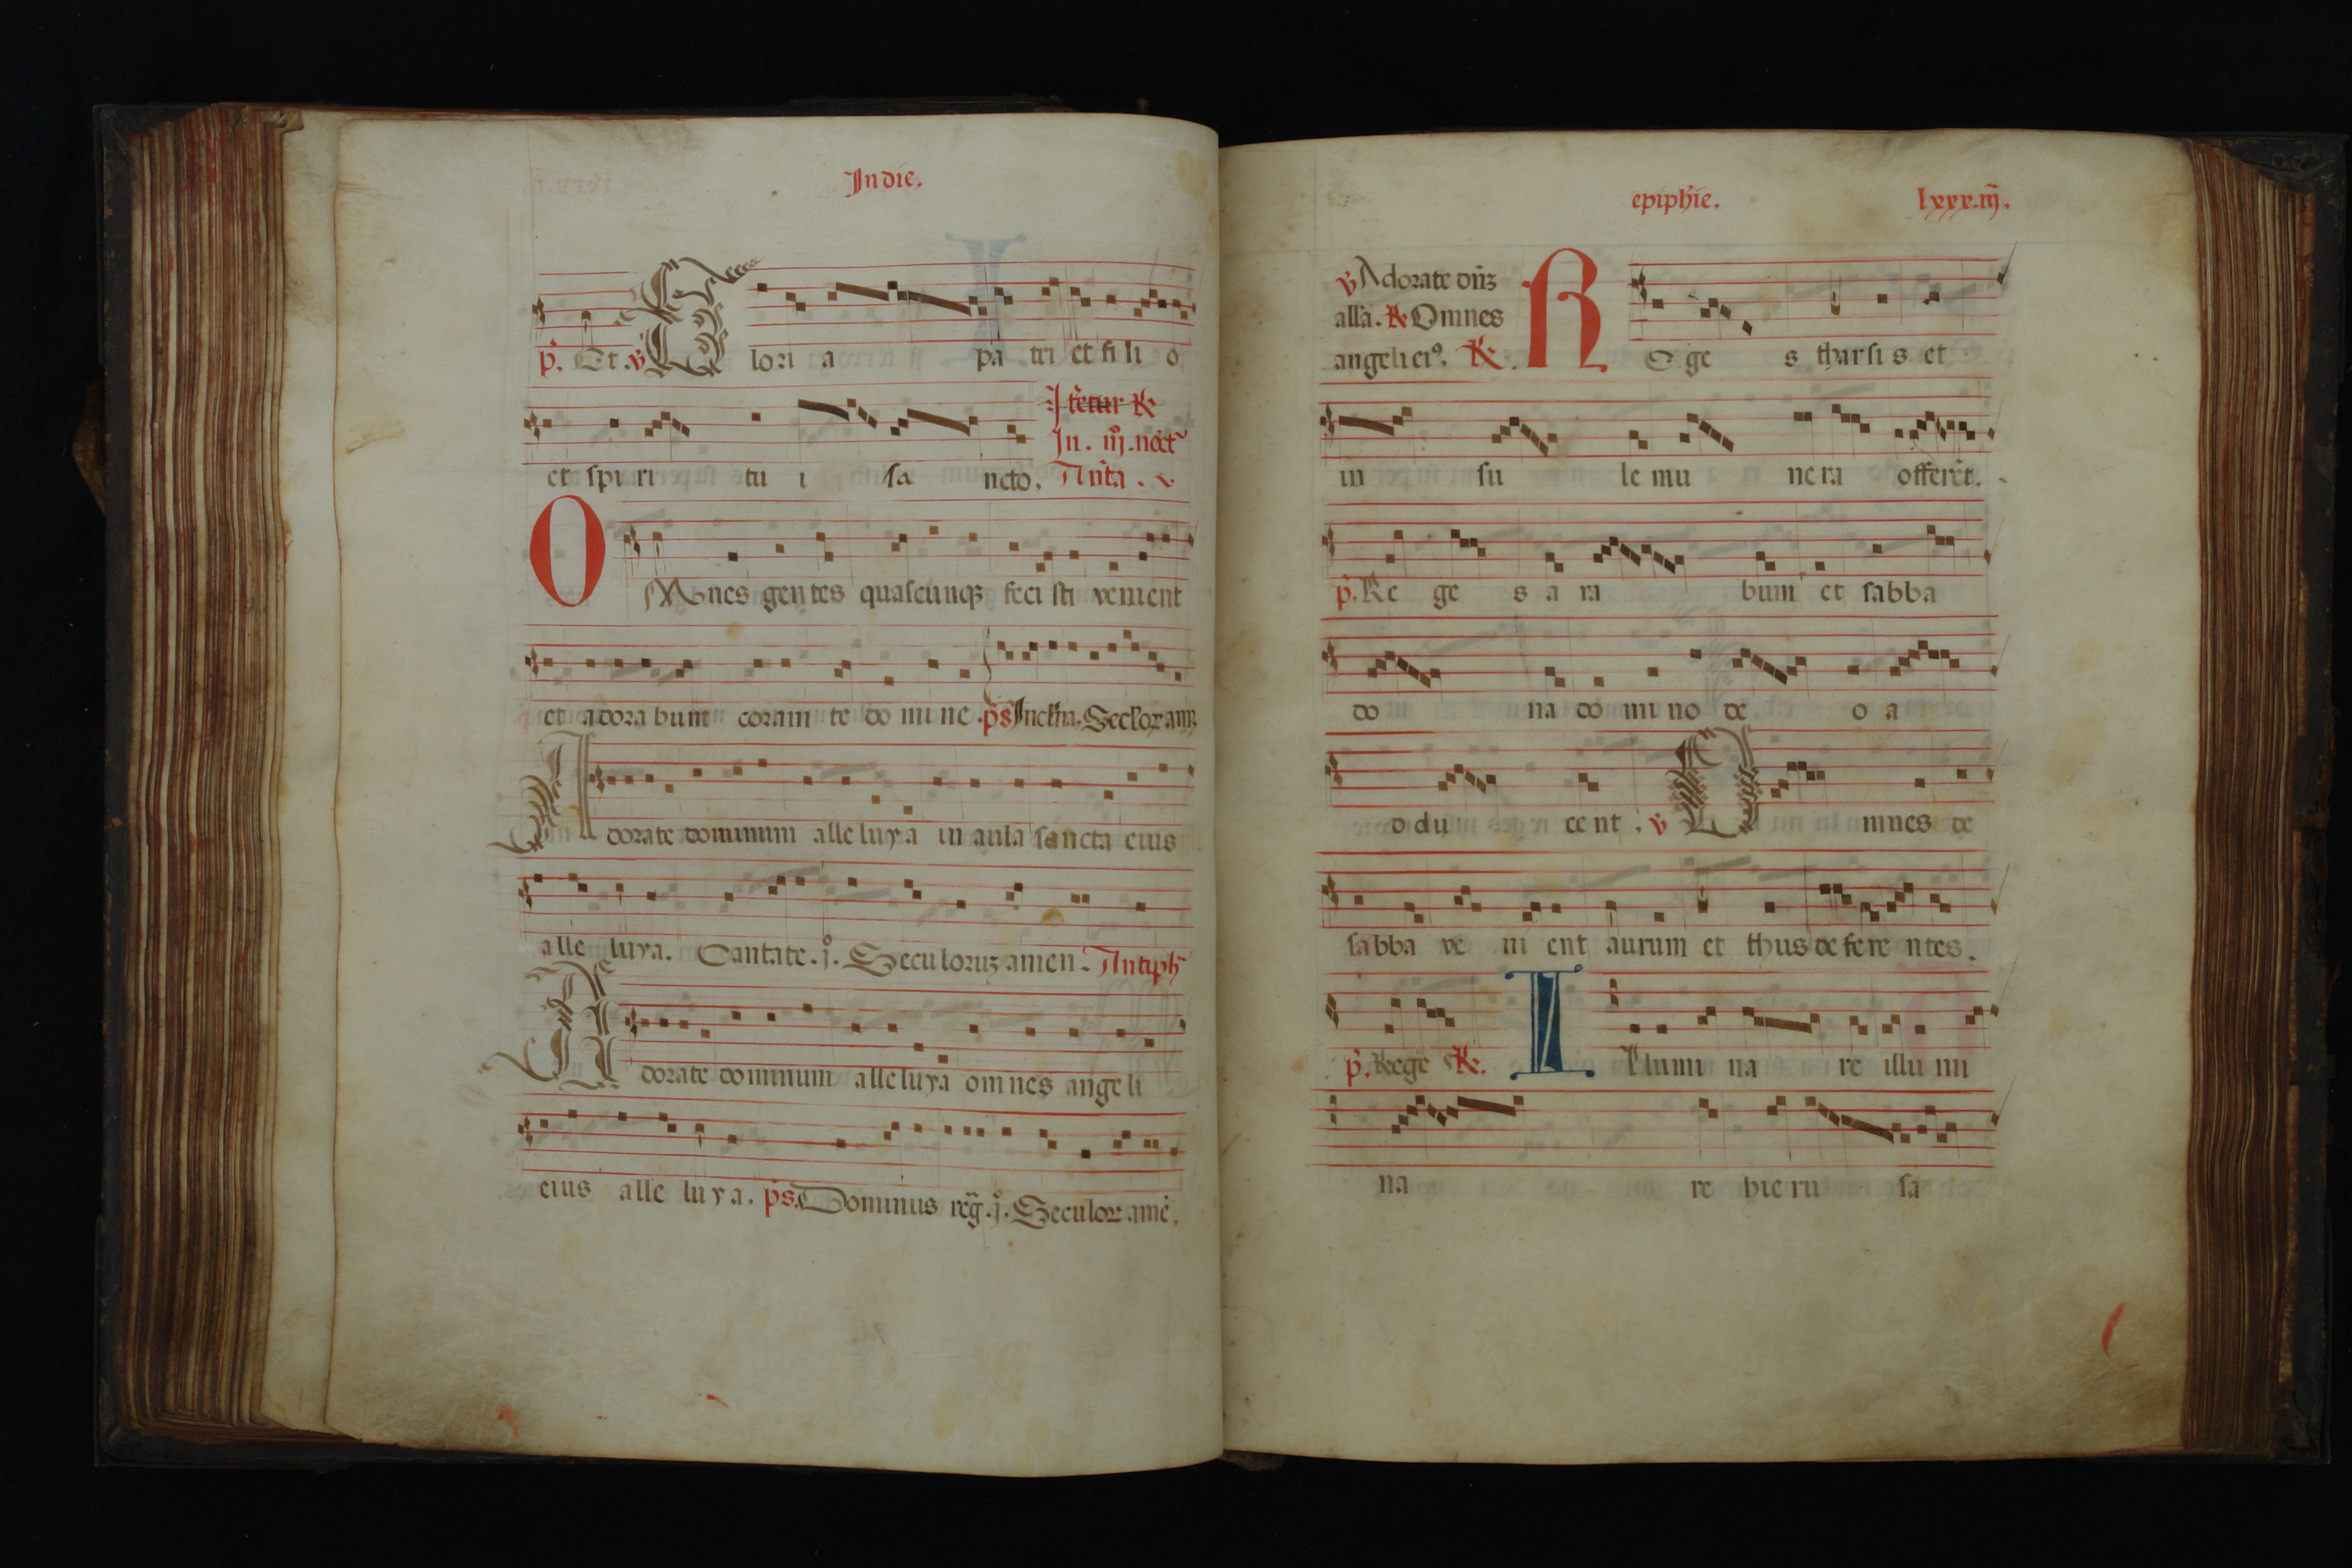 In die.
p̄. Et. ℣ Glori a pa tri et fi li o
et spi ri tu i sa ncto. Itetur ℟
In. iij. noct
Anta.
OMnes gentes quascunq; feci sti venient
et adora bunt coram te do mi ne. ps Inclina. Seclor amen
Adorate dominum alle luya in aula sancta eius
alle luya. Cantate. j. Seculorum amen. Antiph
Adorate dominum alleluya omnes angeli
eius alle luya. ps. Dominus reg. j. Seculor ame.
epiphie. lxxx.iij.
℣ Adorate dnz
alla. ℟ Omnes
angeli ei9. ℟. Re ge s tharsi s et
in su le mu ne ra offeret.
p. Re ge s a ra bum et sabba
do na do mi no de o a
d du cent. ℣ Omnes de
sabba ve ni ent aurum et thus de fe re ntes.
p. Rege ℟. Illumi na re illu mi
na re hie ru sa